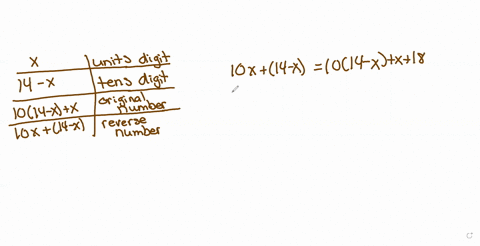 x | units digit
14-x | tens digit
10(14-x)+x | original number
10x+(14-x) | reverse number
10x+(14-x) = 10(14-x)+x+18